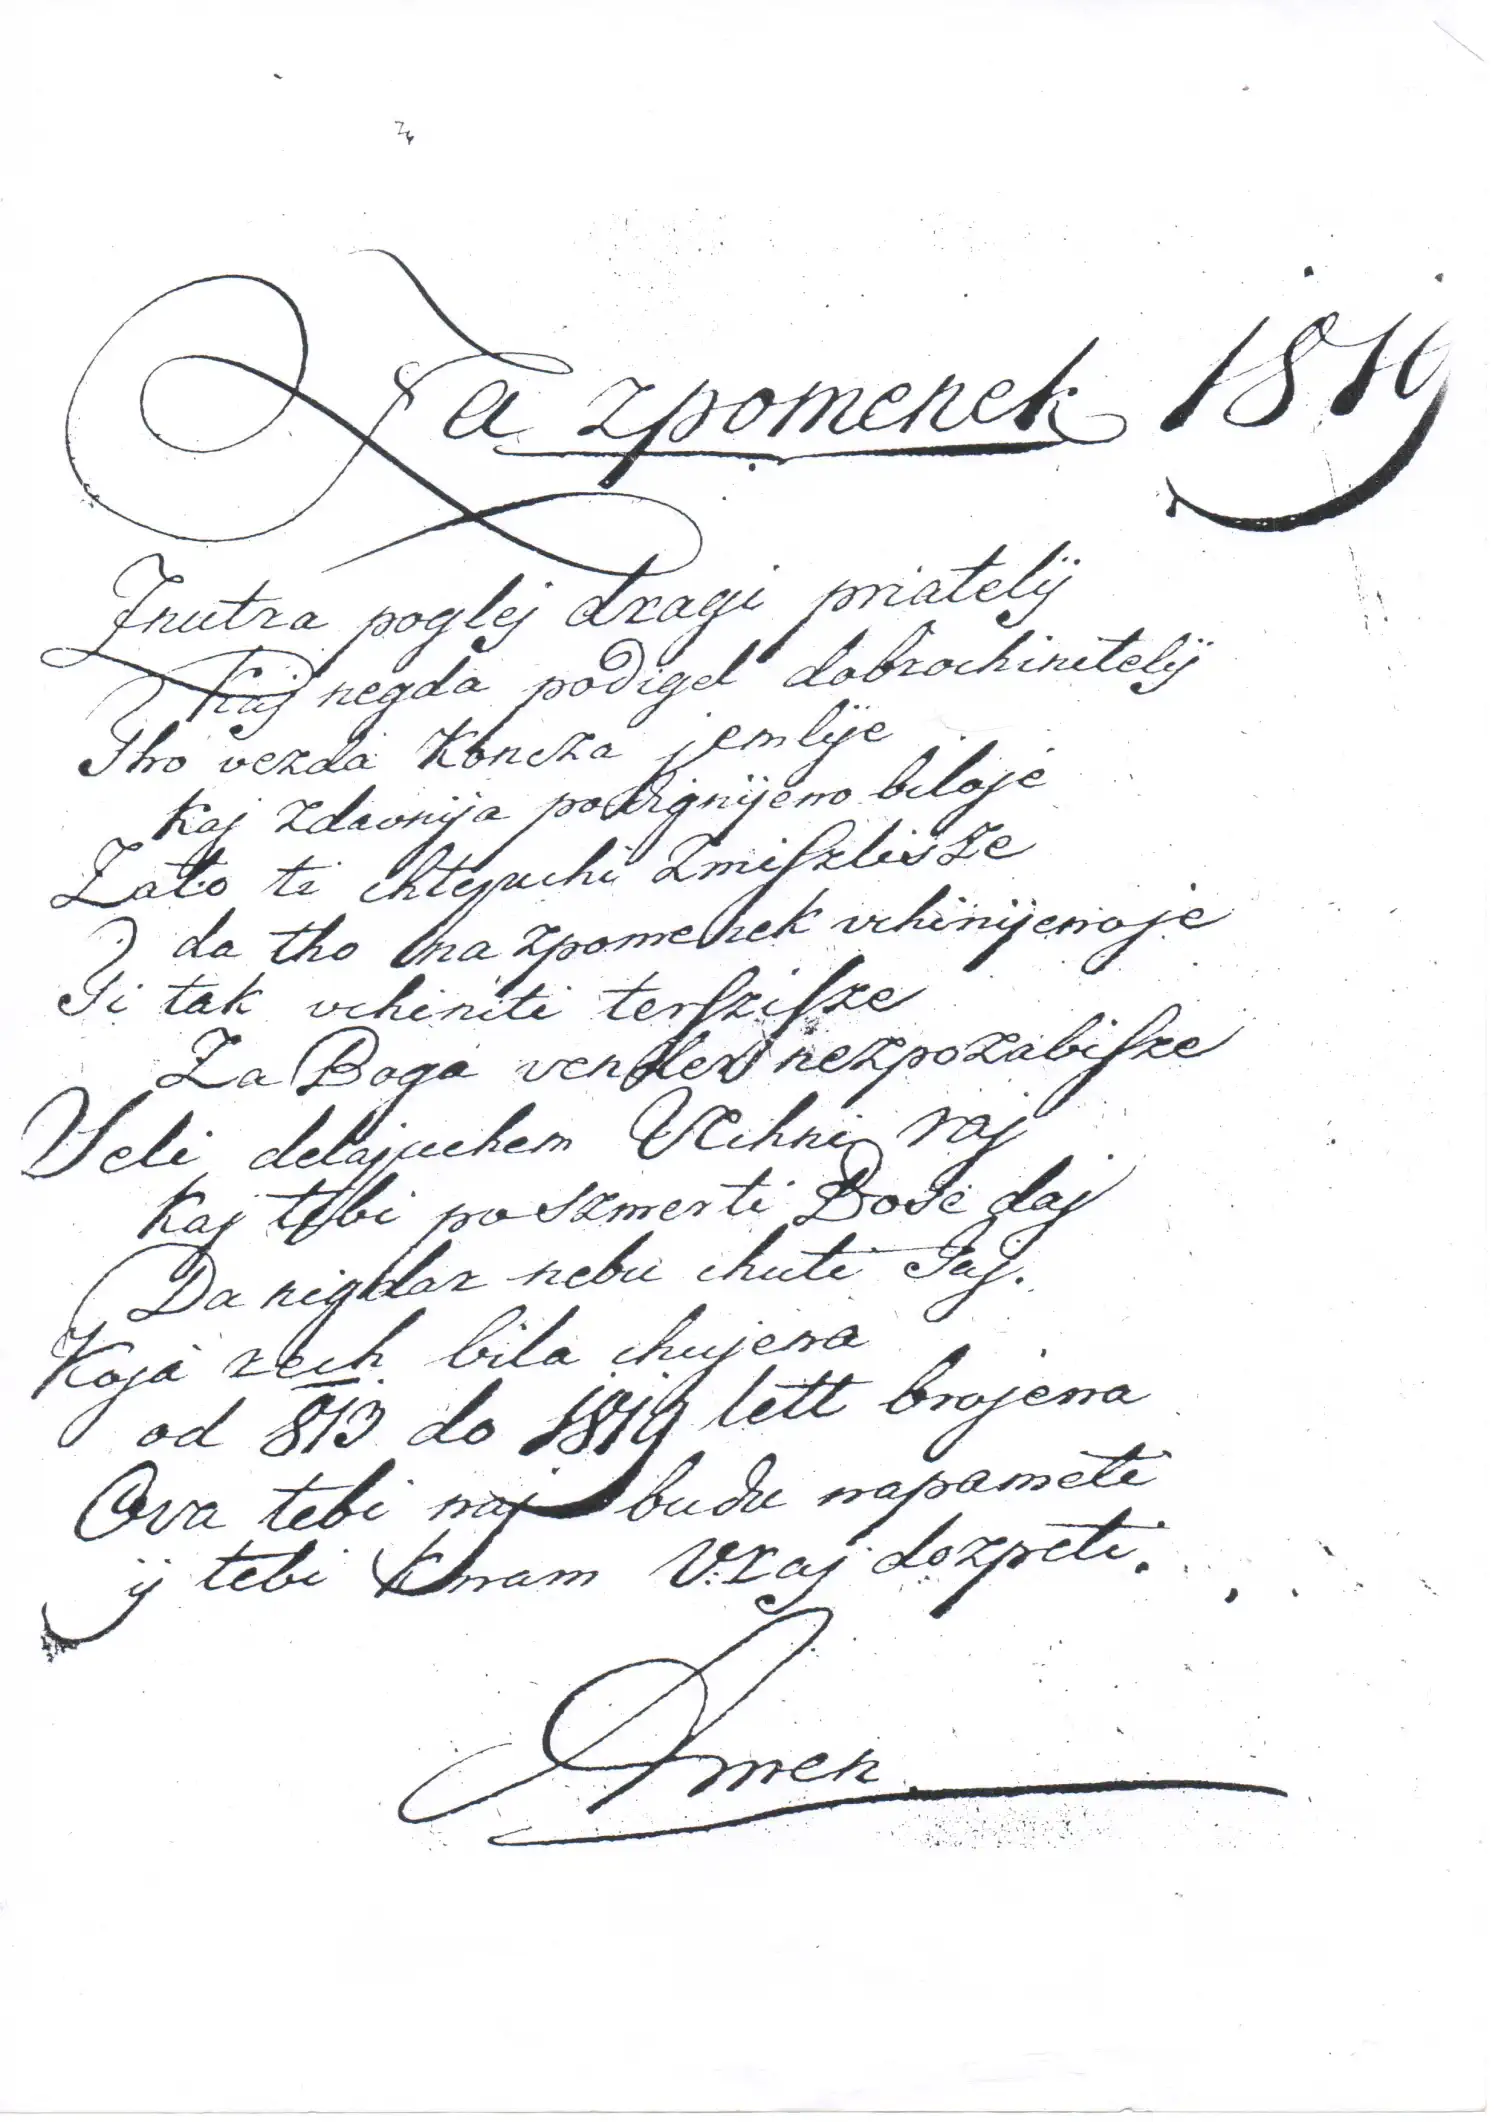 Za zpomenek 1819
Znutra poglej dragi priatelij
Kaj negda podigel dobrochinitelij
Tho vezda Koncza jemlije
Kaj zdavnija podignijeno biloje
Zato ti chtejuchi Zmiszlisze
da tho na zpomenek vchinijenoje
Ti tak vchiniti terszisze
Za Boga vender nezpozabisze
Veli delajuchem Vechni raj
Kaj tebi po szmerti Bose daj
Da nigdar nebu chuti Jaj.
Koja rech bila chujena
od 813 do 1819 lett brojena
Ova tebi naj budu napameti
ij tebi Knam Vraj dozpeti.
Amen